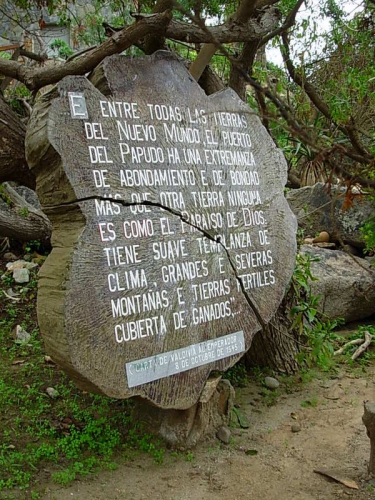 E ENTRE TODAS LAS TIERRAS
DEL NUEVO MUNDO, EL PUERTO
DEL PAPUDO HA UNA EXTREMANZA
DE ABONDAMIENTO E DE BONDAD
MAS QUE OTRA TIERRA NINGUNA
ES COMO EL PARAISO DE DIOS
TIENE SUAVE TEMPLANZA DE
CLIMA, GRANDES E SEVERAS
MONTAÑAS E TIERRAS FERTILES
CUBIERTA DE GANADOS,..."
DE VALDIVIA AL EMPERADOR
8 DE OCTUBRE DE